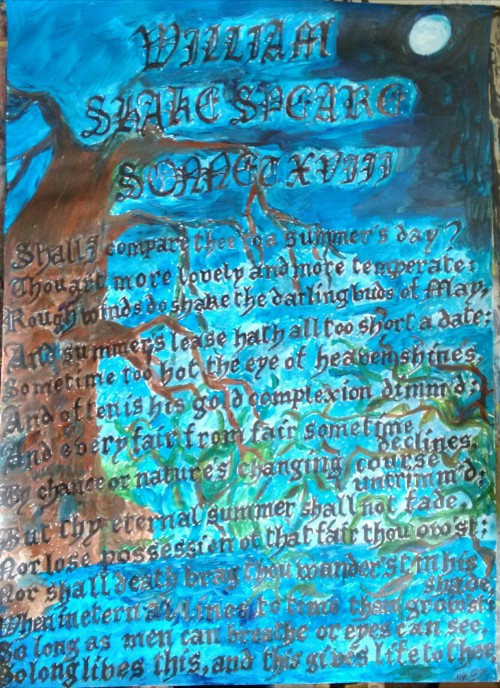 WILLIAM
SHAKESPEARE
SONNET XVIII
Shall I compare thee to a summer's day?
Thou art more lovely and more temperate:
Rough winds do shake the darling buds of May,
And summer's lease hath all too short a date:
Sometime too hot the eye of heaven shines,
And often is his gold complexion dimm'd;
And every fair from fair sometime
declines,
By chance or nature's changing course
untrimm'd;
But thy eternal summer shall not fade,
Nor lose possession of that fair thou owost;
Nor shall death brag thou wander'st in his
shade,
When in eternal lines to time
So long as men can breathe or eyes can see,
So long lives this, and this gives life to thee